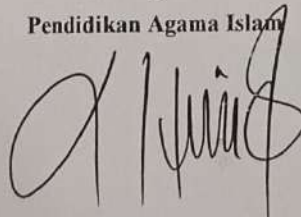 Pendidikan Agama Islam